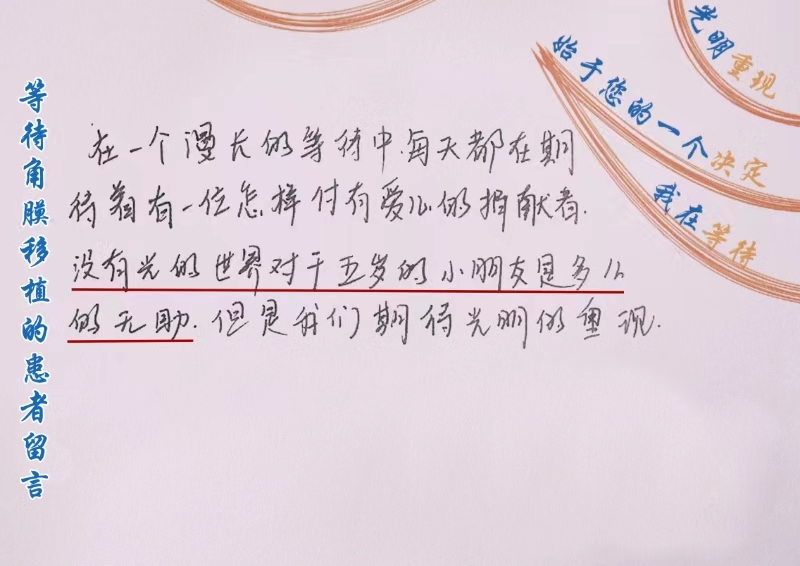 等待角膜移植的患者留言
光明重现
始于您的一个决定
我在等待
在一个漫长的等待中.每天都在期
待着有一位怎样付有爱心的捐献者.
没有光的世界对于五岁的小朋友是多么
的无助.但是我们期待光明的重现.